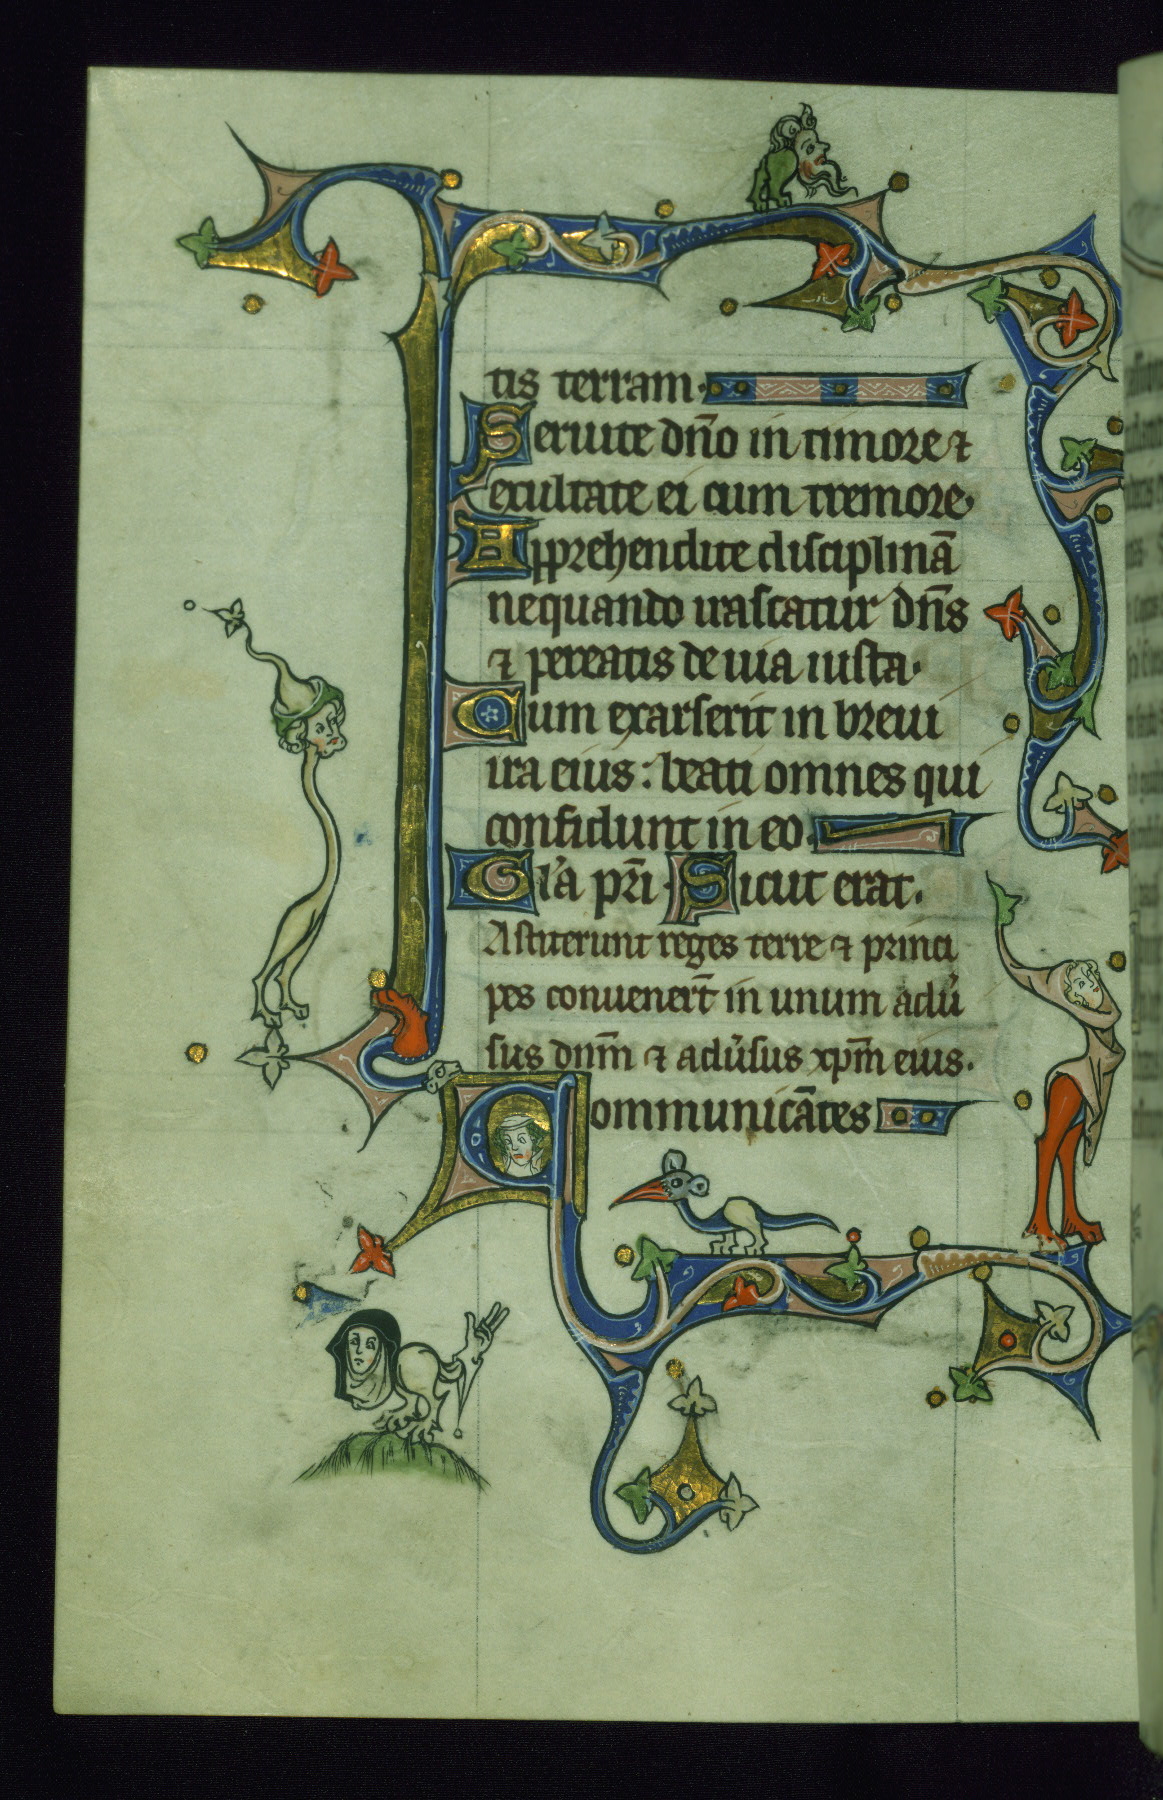 tis terram.
Seruite dn̄o in timore ⁊
exultate ei cum tremore.
Apprehendite disciplinā
nequando irascatur dn̄s
⁊ pereatis de uia iusta.
Cum exarserit in breui
ira eius: beati omnes qui
confidunt in eo.
Gl'a pr̄i. Sicut erat.
Astiterunt reges terre ⁊ princi
pes conuener̄t in unum adu'
sus dn̄m ⁊ adu'sus xp̄m eius.
Communicātes